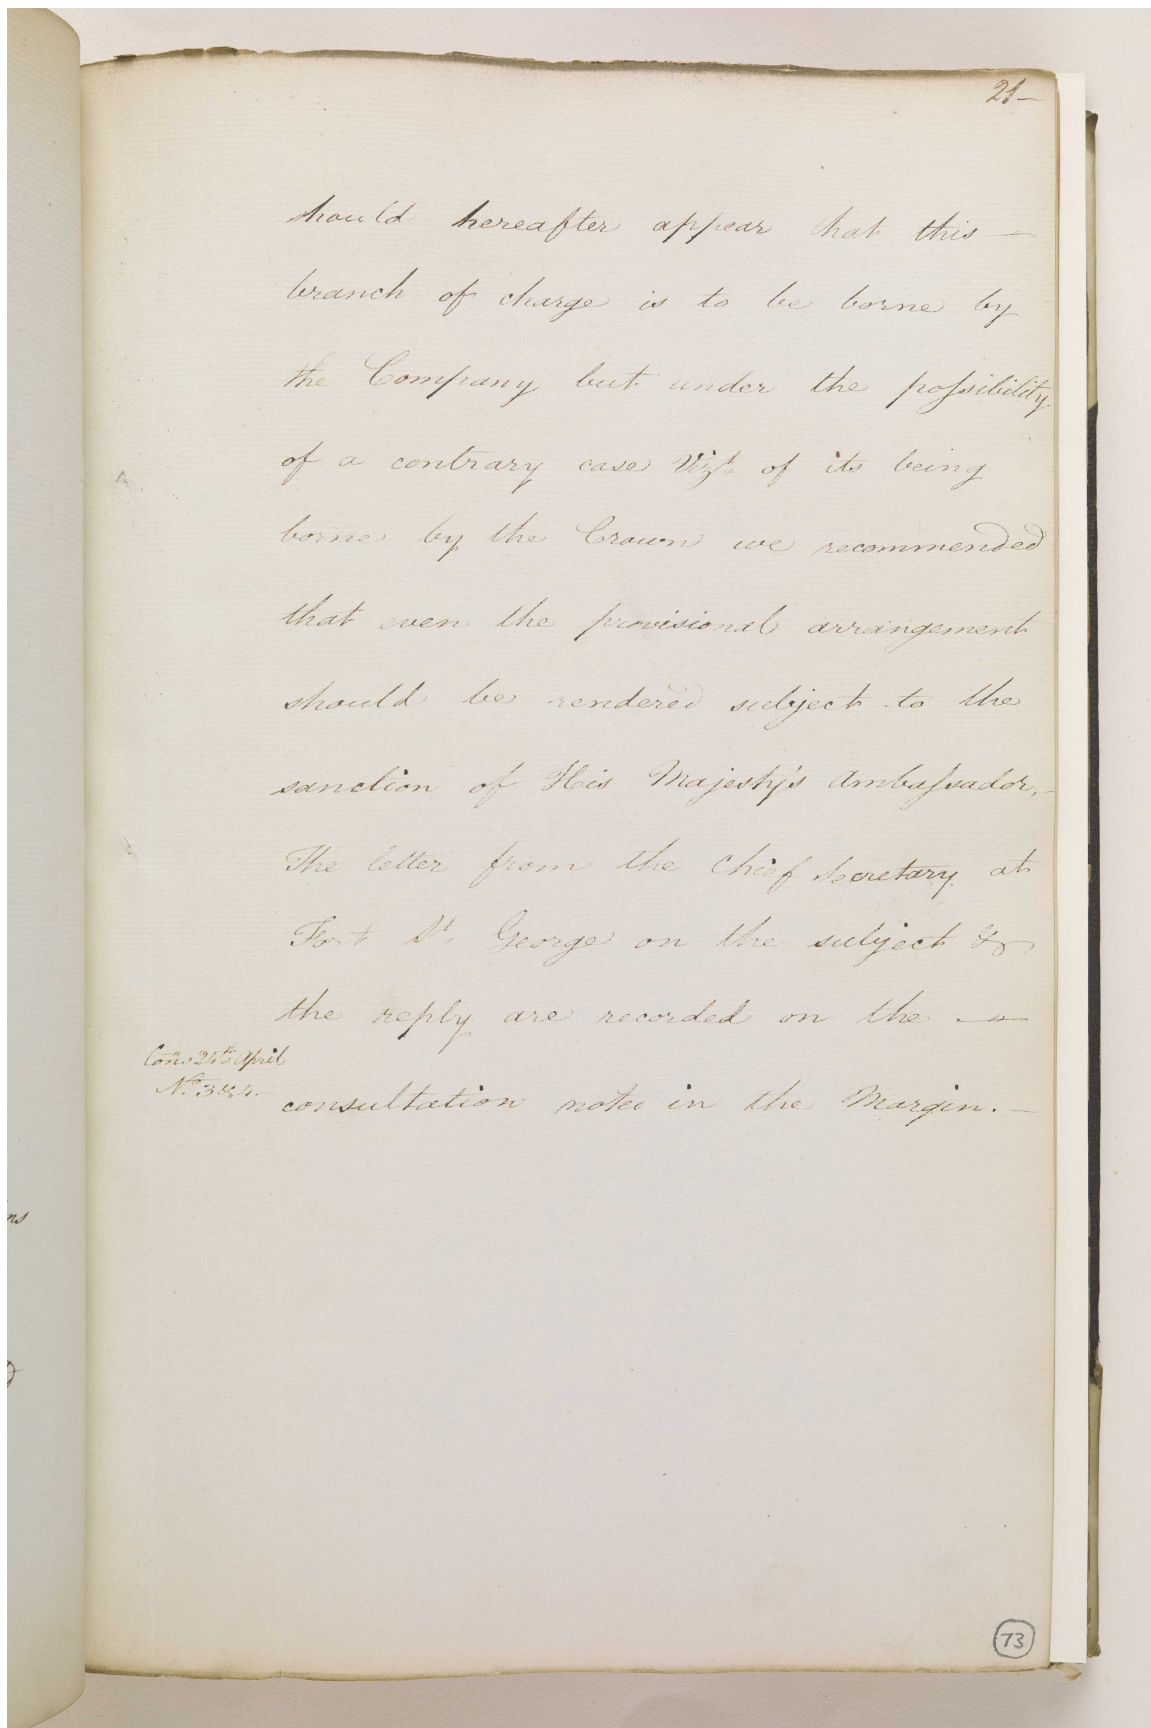 21-
should hereafter appear that this —
branch of charge is to be borne by
the Company but under the possibility
of a contrary case Vizt. of its being
borne by the Crown we recommended
that even the provisional arrangement
should be rendered subject to the
sanction of His Majesty's Ambassador,-
The letter from the Chief Secretary at
Fort St. George on the subject &
the reply are recorded on the —
Cons 24th April
No. 3 & 4.
consultation noted in the Margin. —
73